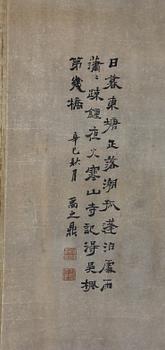 日暮東塘正落潮孤蓬泊處雨
蕭〻疎鐘夜火寒山寺記得吳楓
第幾橋
辛巳秋月 禹之鼎